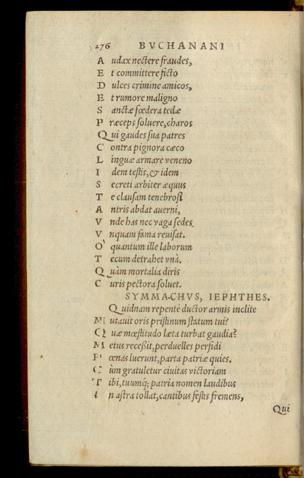 276 BVCHANANI
A udax nectere fraudes,
E t committere ficto
D ulces crimine amicos,
E t rumore maligno
S anctæ fœdera tedæ
P ræceps soluere, charos
Q ui gaudes sua patres
C ontra pignora cæco
L inguæ armare veneno
I dem testis, & idem
S ecreti arbiter æquus
T e clausam tenebrosi
A ntris abdat auerni,
V nde has nec vaga sedes
V nquam fama reuisat.
O' quantum ille laborum
T ecum detrahet vnà.
Q uàm mortalia diris
C uris pectora soluet.
SYMMACHVS, IEPHTHES.
Q uidnam repentè ductor armis inclite
M utauit oris pristinum statum tui?
Q uæ mœstitudo læta turbat gaudia?
M etus recessit, perduelles perfidi
P œnas luerunt, parta patriæ quies.
C ùm gratuletur ciuitas victoriam
T ibi, tuumq; patria nomen laudibus
I n astra tollat, cantibus festis fremens,
Qui